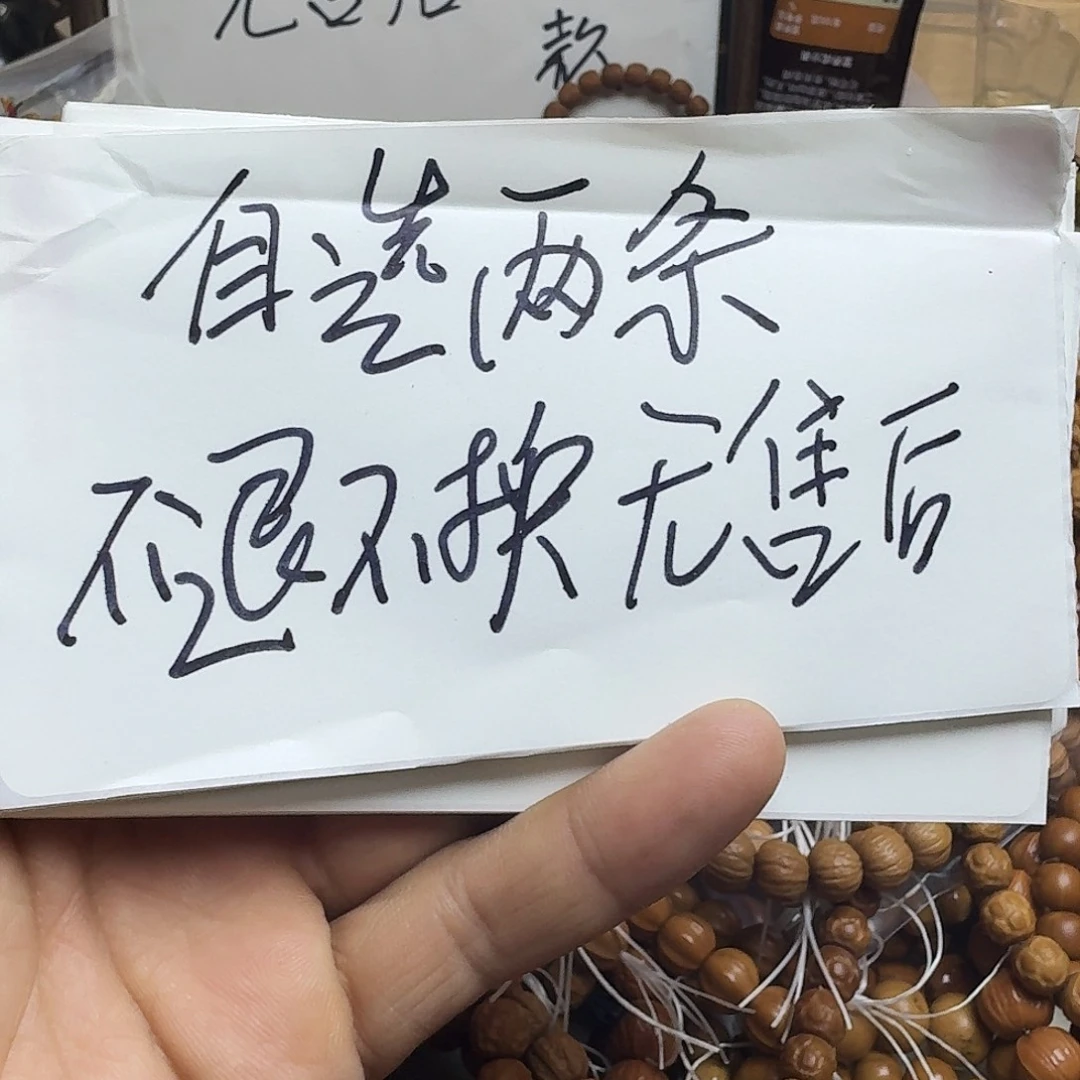 无售后
款
自选两条
不退不换无售后